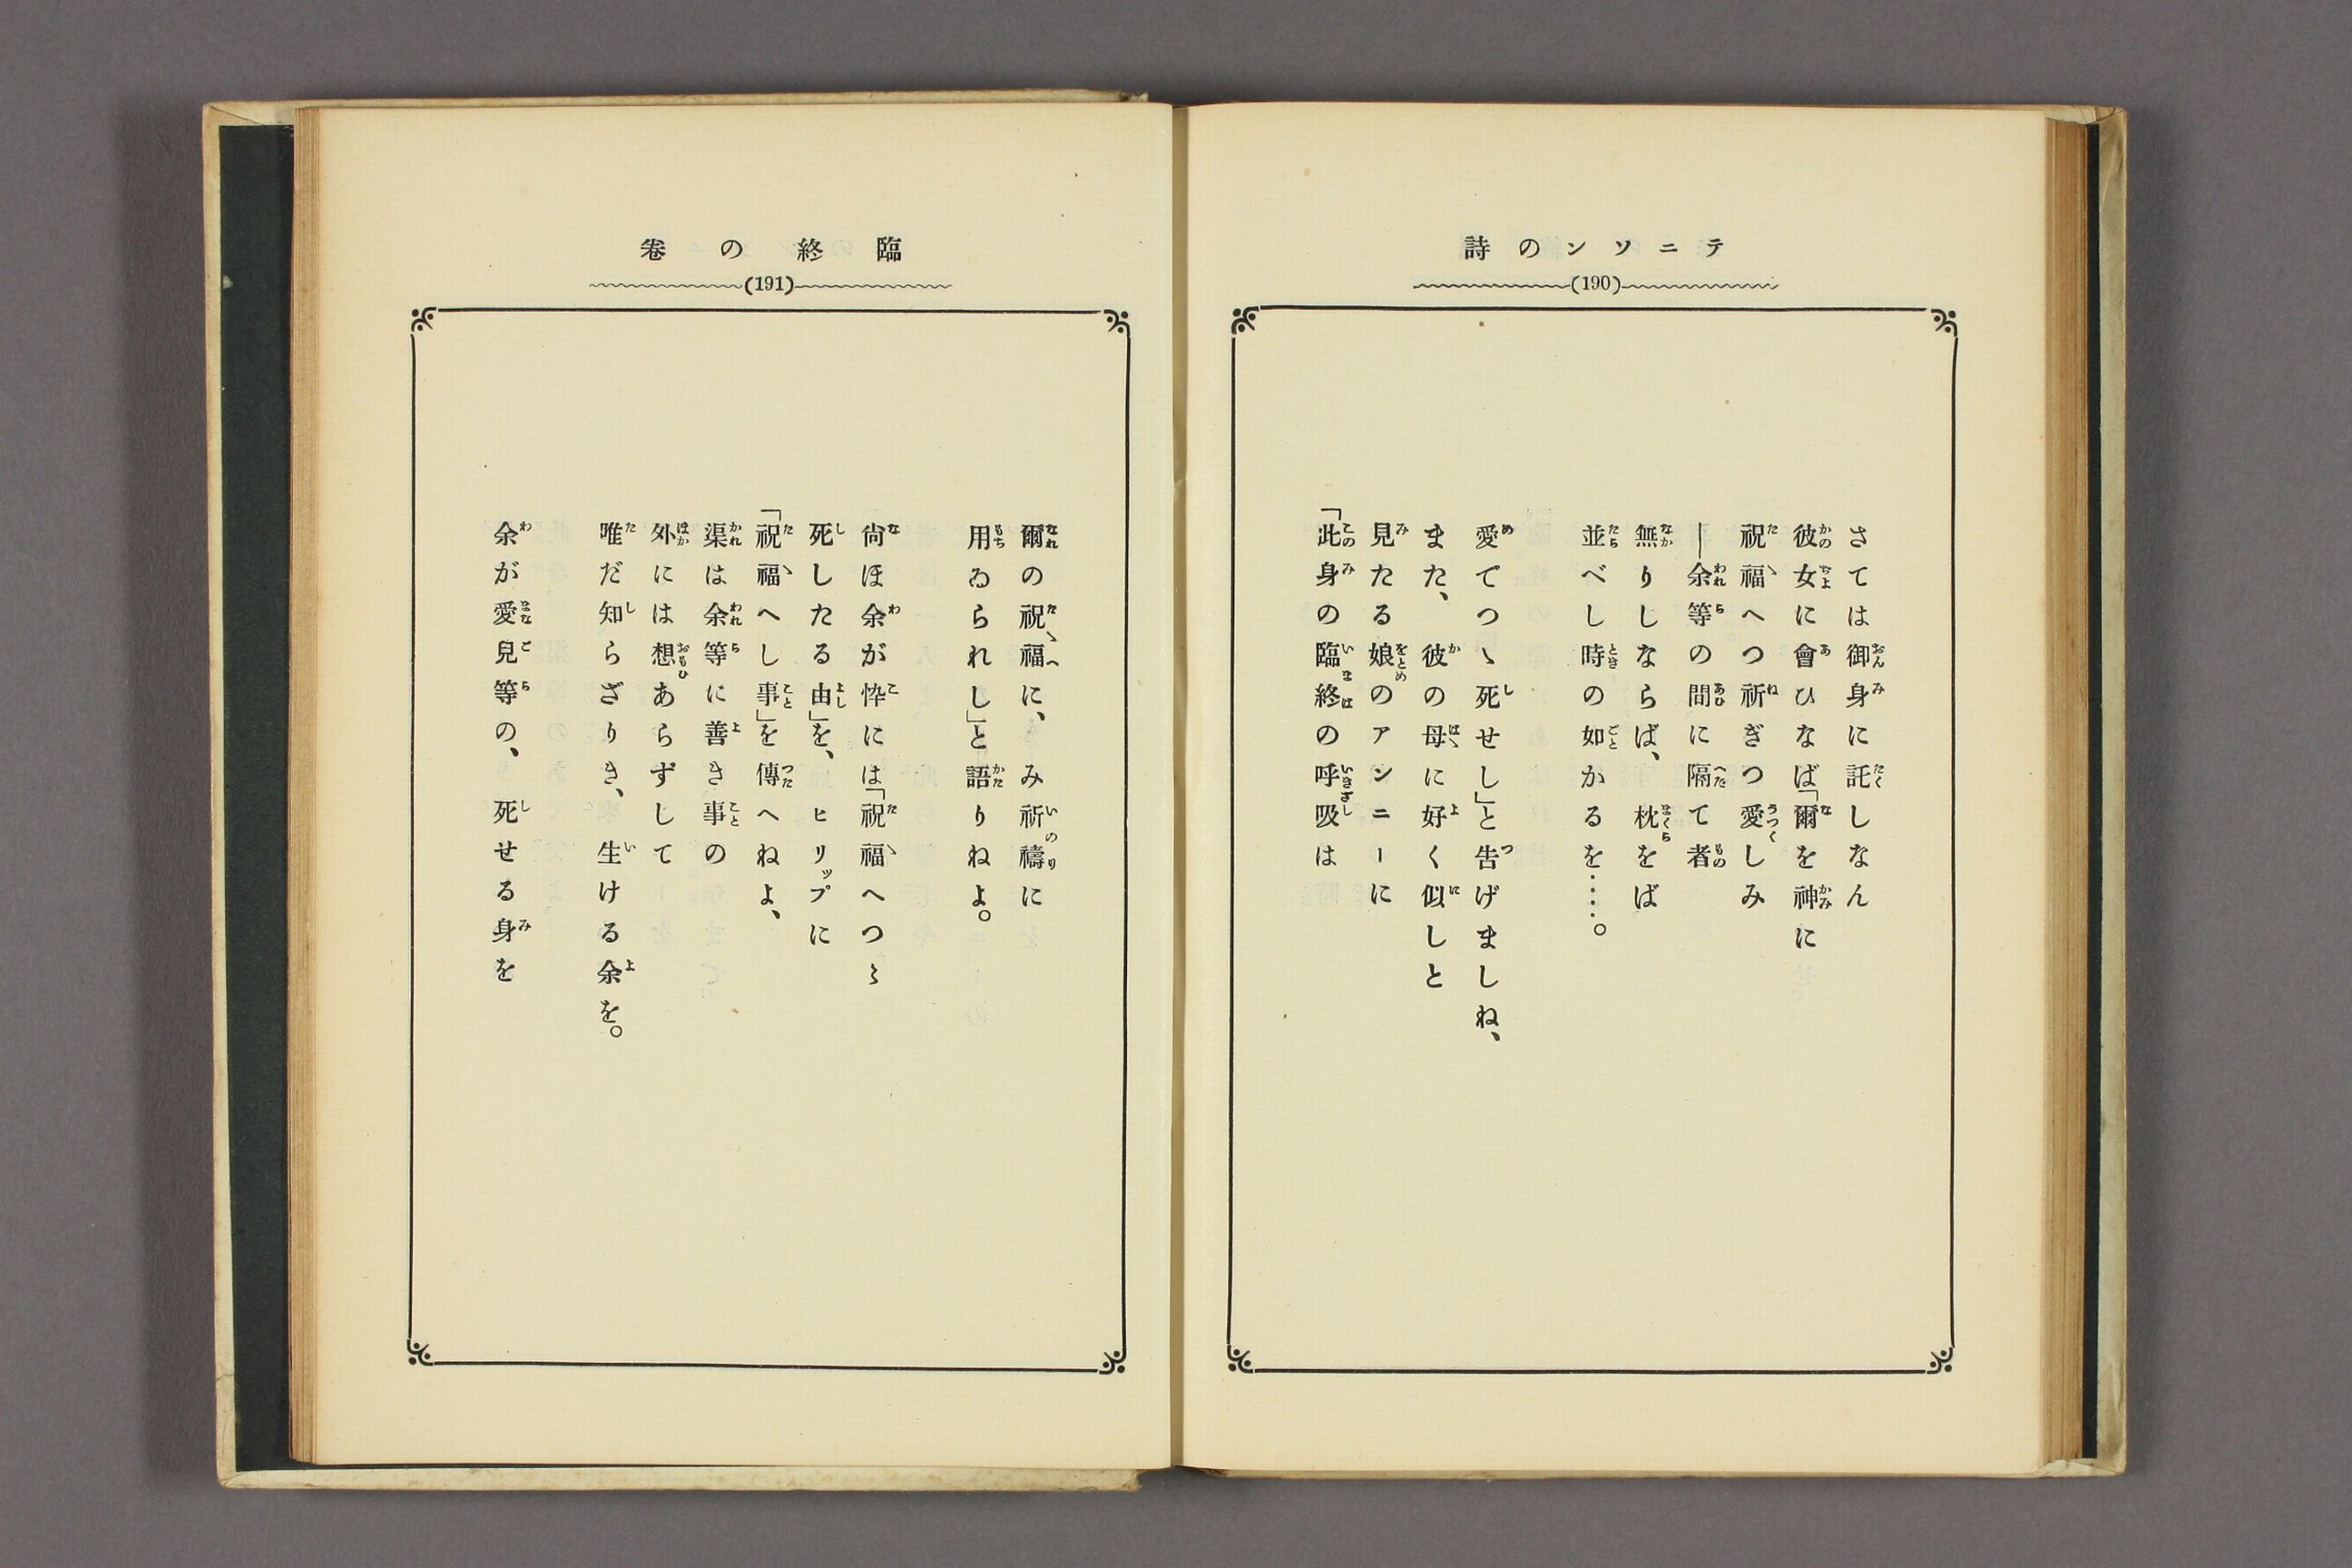 テニソンの詩
(190)
さては御身に託しなん
彼女に會ひなば「爾を神に
祝福へつ祈ぎつ愛しみ
―余等の間に隔て者
無りしならば、枕をば
並べし時の如かるを……。
愛でつゝ死せし」と告げましね、
また、彼の母に好く似しと
見たる娘のアンニーに
「此身の臨終の呼吸は
臨終の卷
(191)
爾の祝福に、み祈禱に
用ゐられし」と語りねよ。
尙ほ余が悴には「祝福へつゝ
死したる由」を、ヒリップに
「祝福へし事」を傳へねよ、
渠は余等に善き事の
外には想あらずして
唯だ知らざりき、生ける余を。
余が愛兒等の、死せる身を